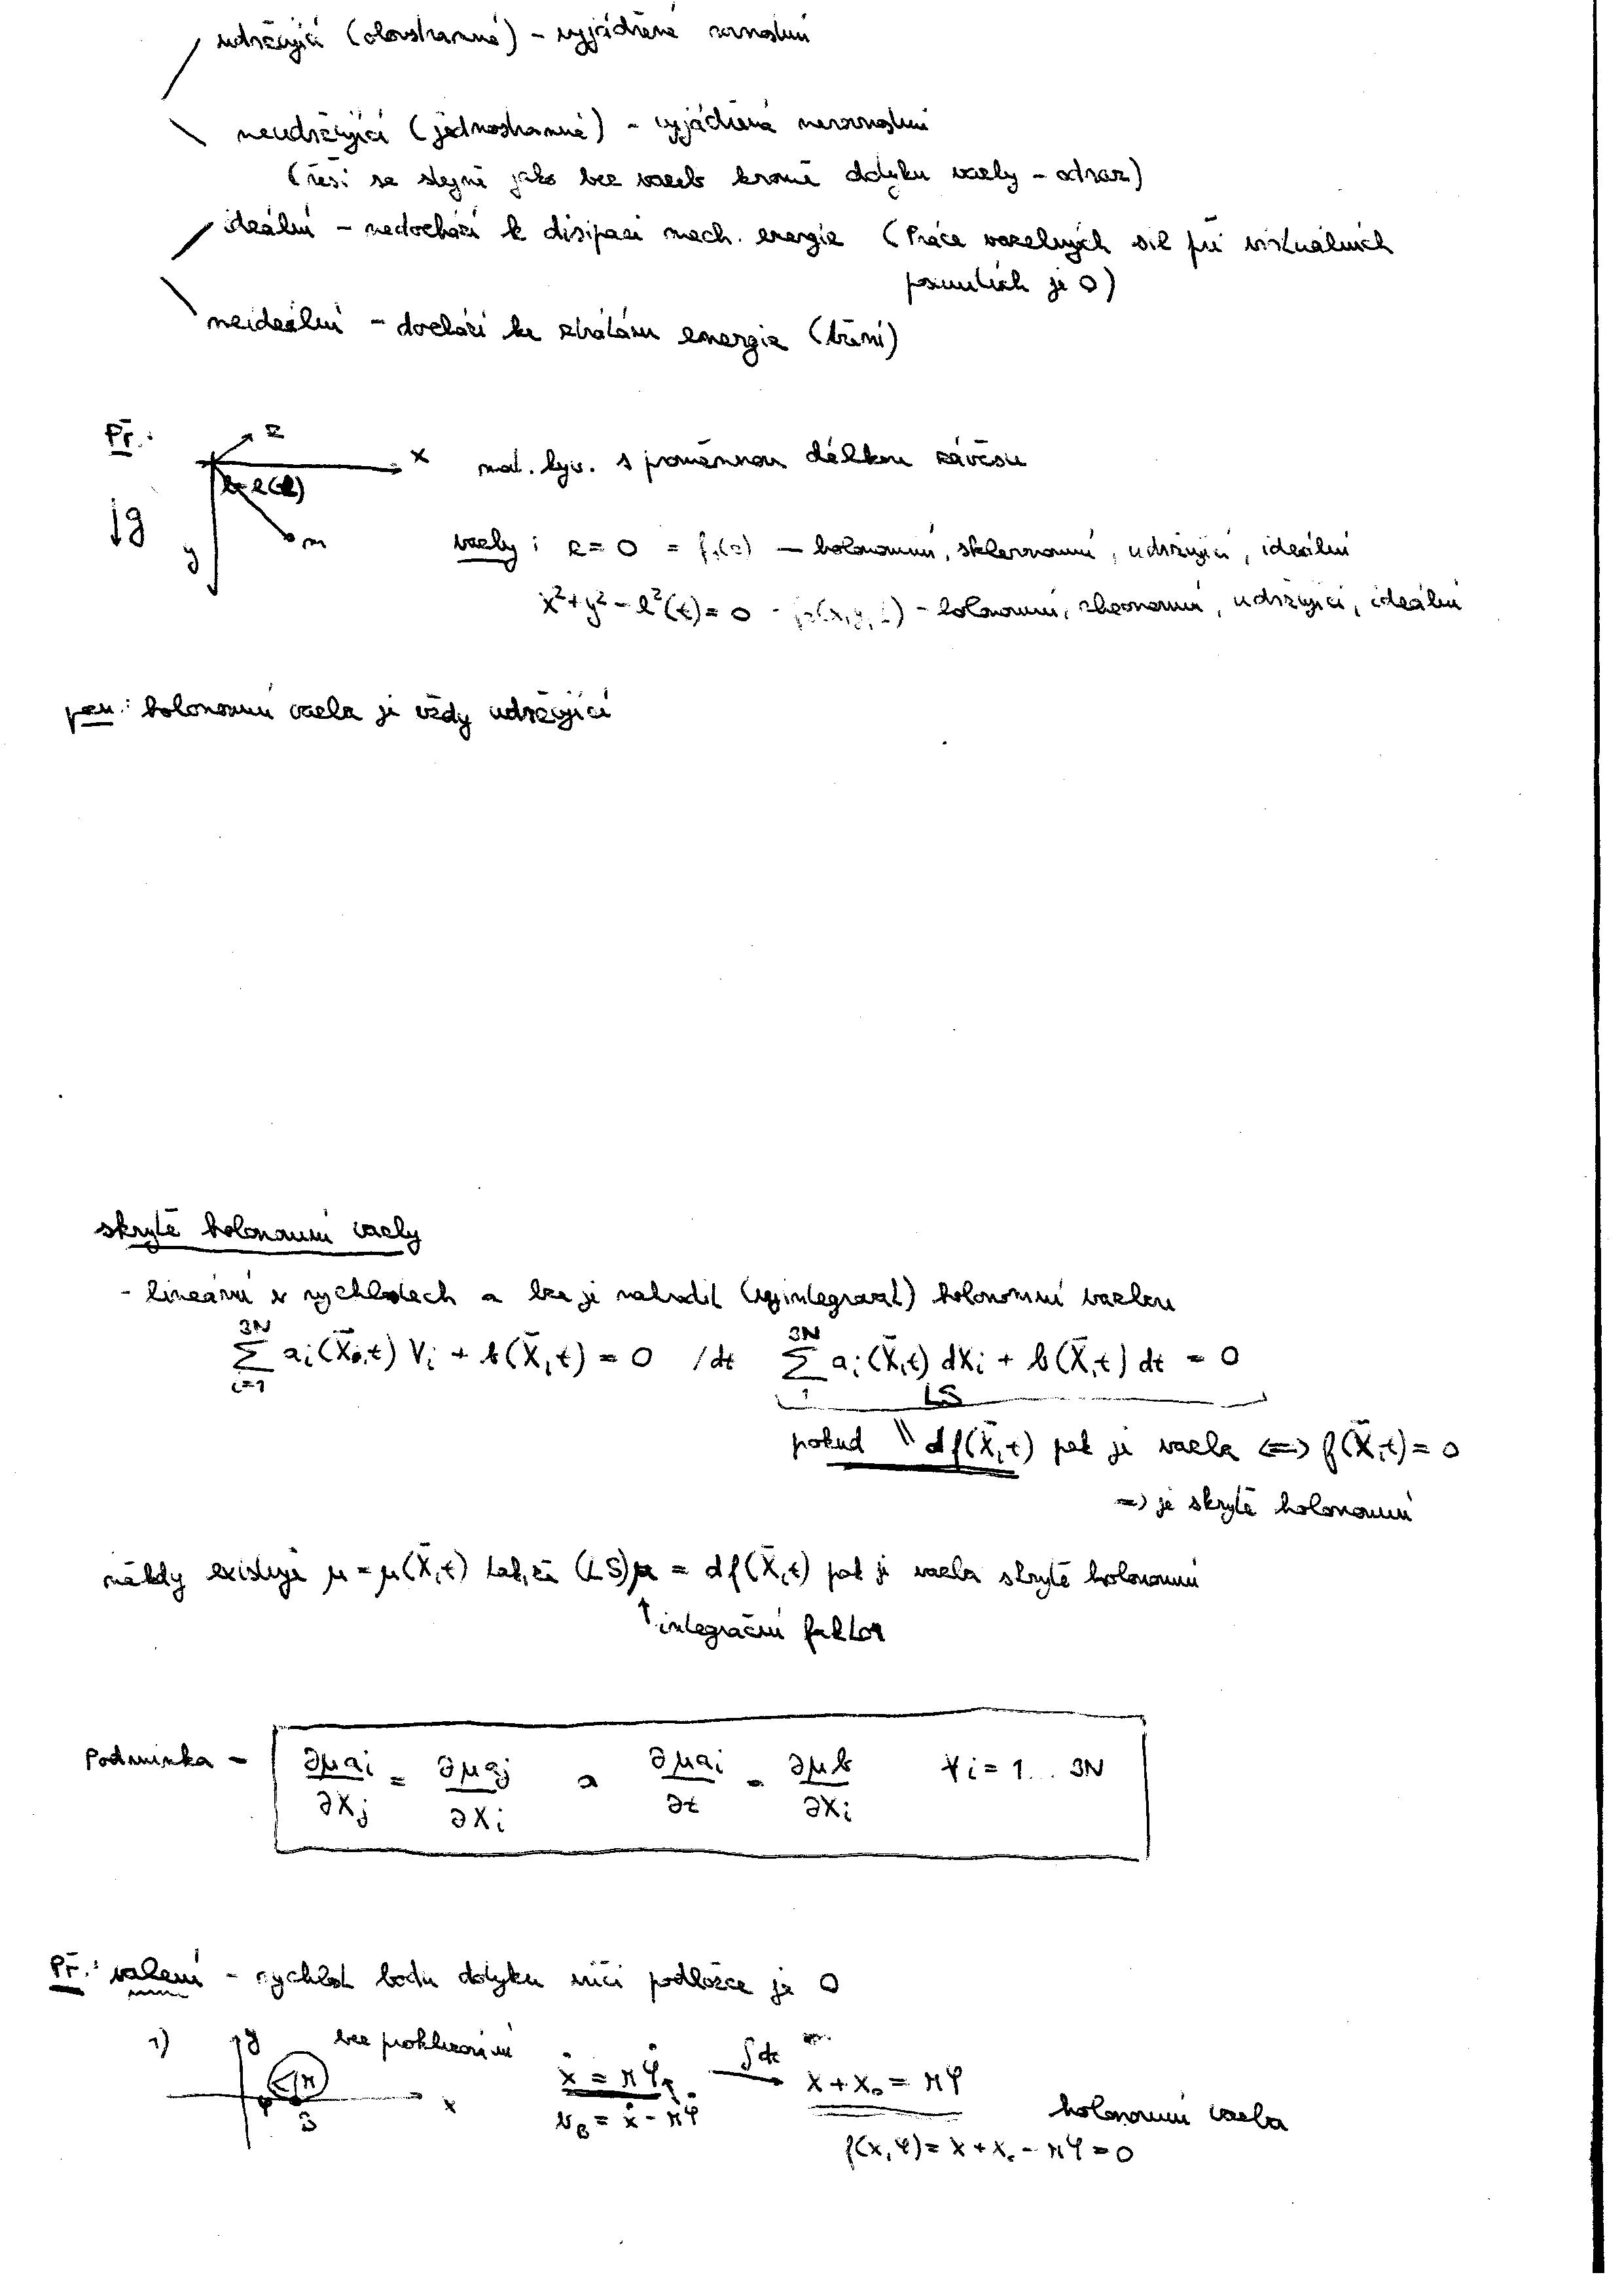 udržující (oboustranné) - vyjádřené rovností
neudržující (jednostranné) - vyjádřená nerovností
(řeší se stejně jako bez vazeb kromě dotyku vazby - odraz)
ideální - nedochází k disipaci mech. energie (Práce vazebných sil při virtuálních
posunutích je 0)
neideální - dochází ke ztrátám energie (tření)
Př.:
z
x
mat. kyv. s proměnnou délkou závěsu
l=l(t)
↓g
y
m
vazby: z = 0 = f₁(z) — holonomní, skleronomní, udržující, ideální
x²+y²-l²(t)=0 - f₂(x,y,t) - holonomní, rheonomní, udržující, ideální
pozn.: holonomní vazba je vždy udržující
skrytě holonomní vazby
- lineární v rychlostech a lze ji nahradit (vyintegrovat) holonomní vazbou
3N Σ i=1 aᵢ(x̄,t) Vᵢ + b(x̄,t) = 0 /dt 3N Σ 1 aᵢ(x̄,t) dxᵢ + b(x̄,t) dt = 0
LS
pokud \\ df(x̄,t) pak je vazba <=> f(x̄,t) = 0
=> je skrytě holonomní
někdy existuje μ = μ(x̄,t) tak, že (LS)μ = df(x̄,t) pak je vazba skrytě holonomní
↑ integrační faktor
Podmínka - ∂μaᵢ/∂xⱼ = ∂μaⱼ/∂xᵢ a ∂μaᵢ/∂t = ∂μb/∂xᵢ ∀i = 1... 3N
Př.: valení - rychlost bodu dotyku vůči podložce je 0
1) y bez prokluzování
r
φ
B
x
ẋ = rφ̇ ∫dt → x + x₀ = rφ
v_B = ẋ - rφ̇
holonomní vazba
f(x,φ) = x + x₀ - rφ = 0